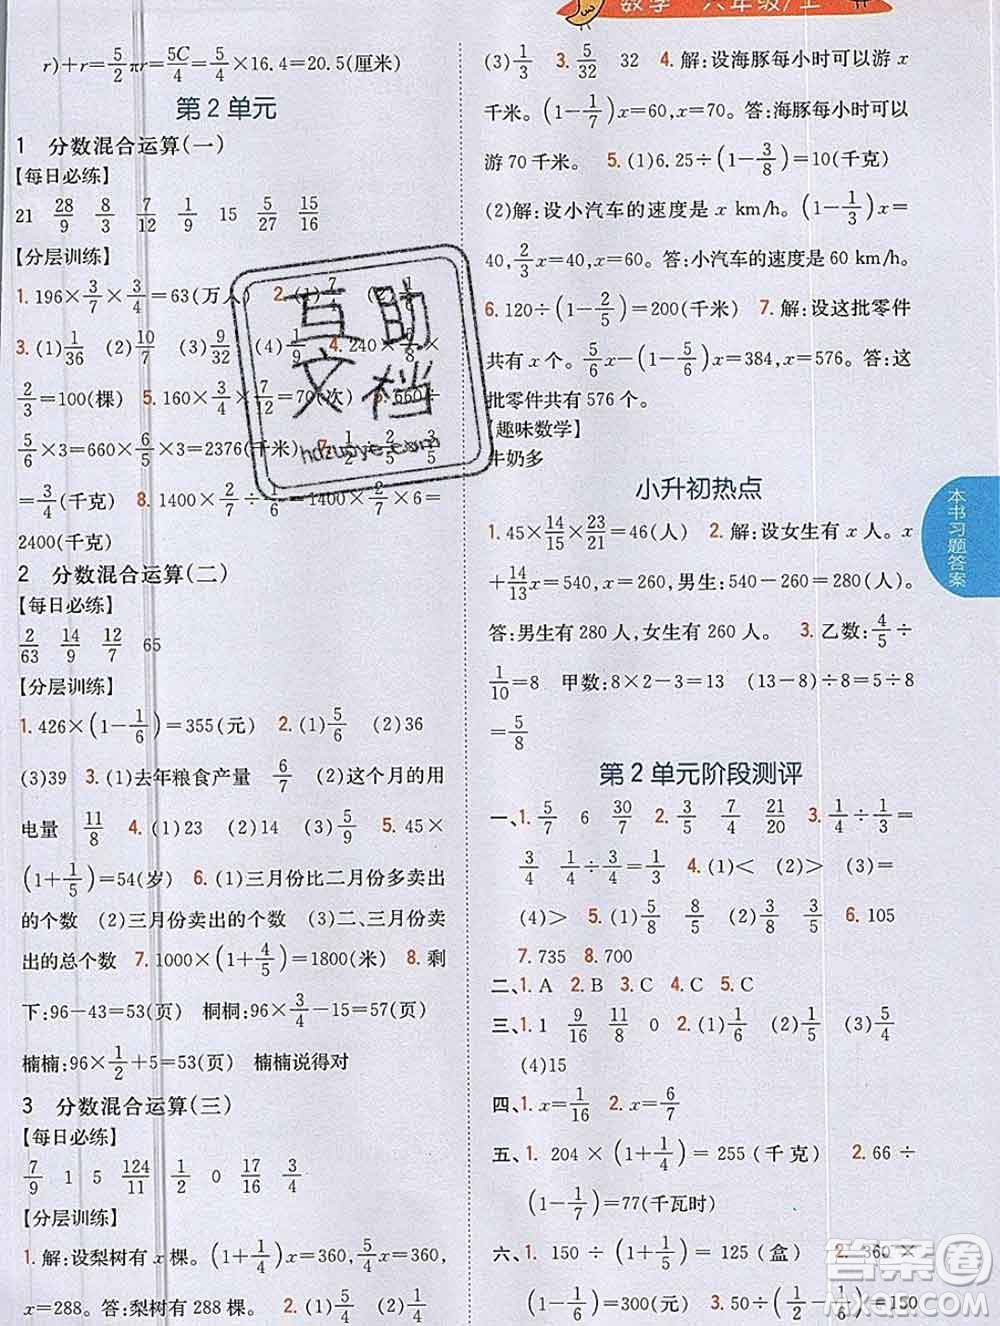 数学 六年级/上
r)+r=5/2πr=5C/4=5/4×16.4=20.5(厘米)
第2单元
1 分数混合运算(一)
【每日必练】
21 28/9 8/3 7/12 1/9 15 5/27 15/16
【分层训练】
1. 196×3/7×3/4=63(万人) 2. (1)7/
3. (1)1/36 (2)5/14 (3)9/32 (4)1/9 4. 240×5/8×
2/3=100(棵) 5. 160×3/4×7/12=70(次) 6. 660÷
5/6×3=660×6/5×3=2376(千米) 7. 1/2 2/5 3/5
=3/4(千克) 8. 1400×2/7÷1/6=1400×2/7×6=
2400(千克)
2 分数混合运算(二)
【每日必练】
2/63 14/9 12/7 65
【分层训练】
1. 426×(1-1/6)=355(元) 2. (1)5/6 (2)36
(3)39 3. (1)去年粮食产量 6/7 (2)这个月的用
电量 11/8 4. (1)23 (2)14 (3)5/9 5. 45×
(1+1/5)=54(岁) 6. (1)三月份比二月份多卖出
的个数 (2)三月份卖出的个数 (3)二、三月份卖
出的总个数 7. 1000×(1+4/5)=1800(米) 8. 剩
下:96-43=53(页) 桐桐:96×3/4-15=57(页)
楠楠:96×1/2+5=53(页) 楠楠说得对
3 分数混合运算(三)
【每日必练】
7/9 1 5 124/11 1/2 0 17/16 3/31
【分层训练】
1. 解:设梨树有x棵。(1+1/4)x=360,5/4x=360,
x=288。答:梨树有288棵。 2. (1)5/4 (2)1/4
(3)1/3 3. 5/32 32 4. 解:设海豚每小时可以游x
千米。(1-1/7)x=60,x=70。答:海豚每小时可以
游70千米。 5. (1)6.25÷(1-3/8)=10(千克)
(2)解:设小汽车的速度是x km/h。(1-1/3)x=
40,2/3x=40,x=60。答:小汽车的速度是60 km/h。
6. 120÷(1-2/5)=200(千米) 7. 解:设这批零件
共有x个。5/6x-(1-5/6)x=384,x=576。答:这
批零件共有576个。
【趣味数学】
牛奶多
小升初热点
1. 45×14/15×23/21=46(人) 2. 解:设女生有x人。x
+14/13x=540,x=260,540-260=280(人)
答:男生有280人,女生有260人。 3. 乙数:4/5÷
1/10=8 甲数:8×2-3=13 (13-8)÷8=5÷8
=5/8
第2单元阶段测评
一、1. 5/7 6 30/7 2. 3/5 7/4 21/20 3. 1/4÷1/3=
3/4 1/4÷3/4=1/3 4. (1)< (2)> (3)=
(4)> 5. (1)5/8 8/5 (2)3/5 2/5 6. 105
7. 735 8. 700
二、1. A 2. B 3. C 4. C 5. C
三、1. 1 9/16 11/8 0 2. (1)1/6 (2)2/3 (3)5/4
(4)15
四、1. x=1/16 2. x=6/7
五、1. 204×(1+1/4)=255(千克) 2. 66÷
(1-1/7)=77(千瓦时)
六、1. 150÷(1+1/5)=125(盒) 2. 360×
(1-1/6)=300(元) 3. 50÷(1/2-1/6)=150
本书习题答案
互助文档
hdzuoye.com
答案圈